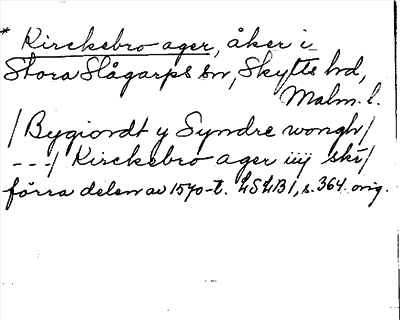 * Kirckebro ager, åker i
Stora Slågarps sn, Skytts hd,
Malm. l.
/ Bygiordt y Syndre wongh /
---/ Kirckebro ager iiij ski /
förra delen av 1570-t. LSLB1, s. 364. orig.